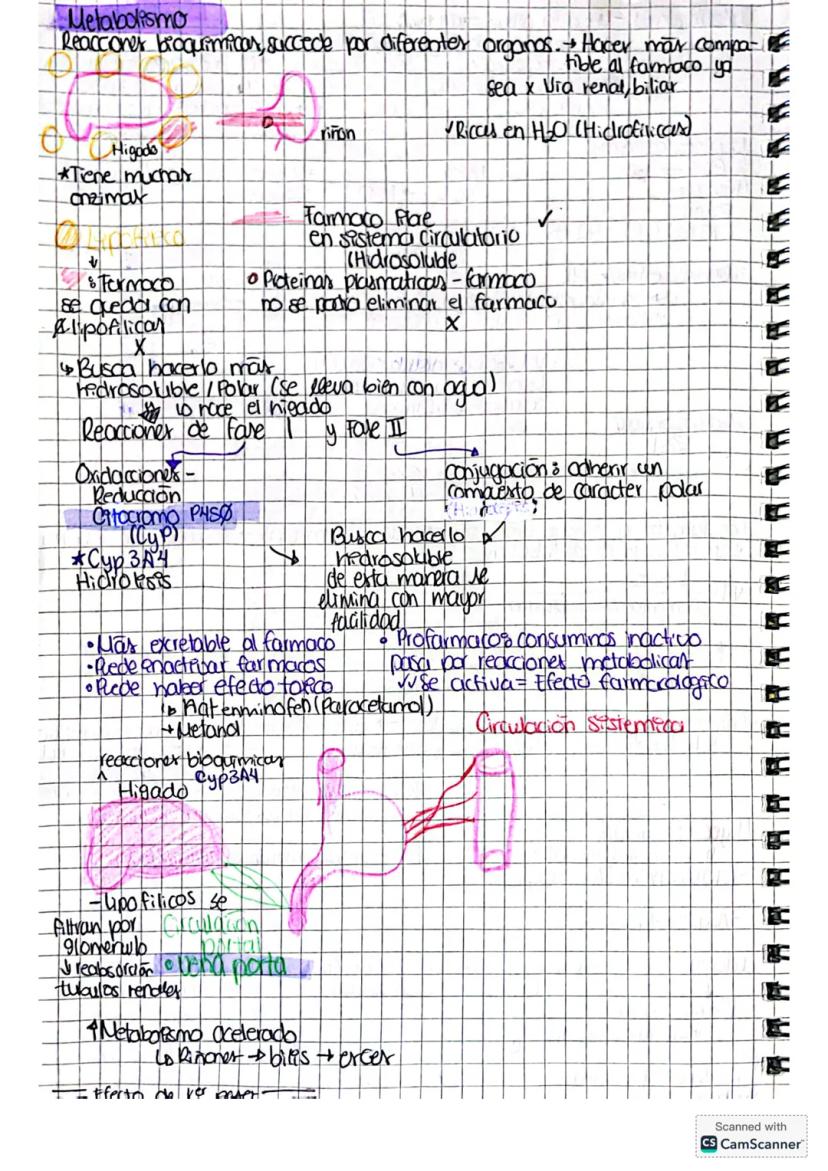 Metabolismo
Reacciones bioquimicas, succede por diferentes organos. → Hacer mas compa-
tible al farmaco ya
sea x via renal, biliar
riñon
✓Ricas en H2O (Hidrofilicas)
Higado
*Tiene muchas
enzimas
Lipofilico
Farmaco libre ✓
en sistema circulatorio
(Hidrosoluble
Farmaco
se queda con
lipofilicas
X
Proteinas plasmaticas - farmaco
no se podra eliminar el farmaco
X
↳ Busca hacerlo mas
hidrosoluble / Polar (se lleva bien con agua)
lo hace el higado
Reacciones de fase I y Fase II
Oxidacciones -
Reducción
Citocromo P450
(CyP)
*Cyp 3A4
Hidrolisis
conjugación: adherir un
compuesto de caracter polar
Busca hacerlo
hidrosoluble
de esta manera se
elimina con mayor
facilidad
•Más excretable al farmaco
•Puede enactivar farmacos
•Puede haber efecto toxico
↳ Acetenminofen (Paracetamol)
→ Metanol
• Profarmacos: consumimos inactivo
pasa por reacciones metabolicas
✓✓Se activa = Efecto farmacologico
Circulación Sistemica
reacciones bioquimicas
Cyp3A4
Higado
- lipofilicos se
filtran por
glomerulo
↓ reabsorción
tubulos renales
Circulación
portal
• Vena porta
↑Metabolismo acelerado
↳ Riñones → bilis → exces
Efecto de 1er paso
Scanned with
CS CamScanner